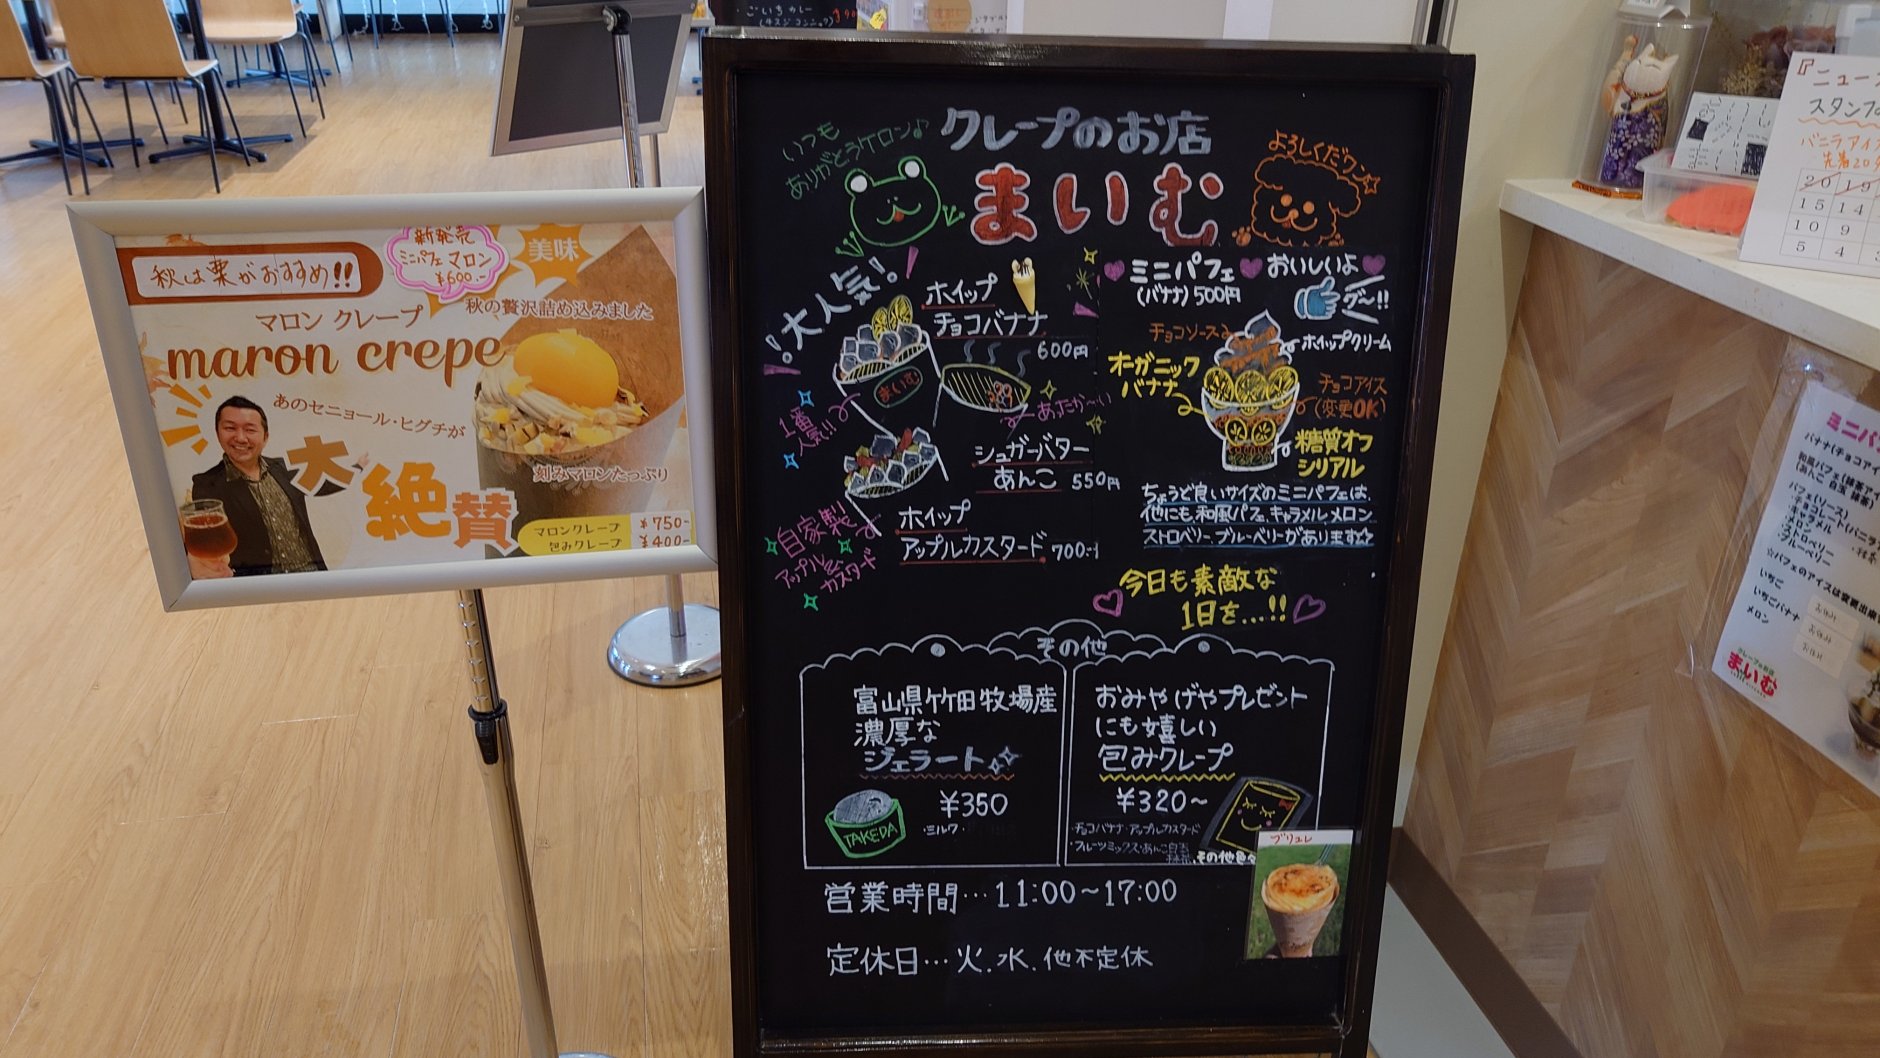 ごいちカレー
秋は栗がおすすめ!!
新発売
ミニパフェ マロン
¥600.-
美味
秋の贅沢詰め込みました
マロン クレープ
maron crepe
あのセニョール・ヒグチが
大絶賛
刻みマロンたっぷり
マロンクレープ ¥750-
包みクレープ ¥400-
いつも
ありがとうケロン♪
クレープのお店
まいむ
よろしくだワン☆
!大人気!
ホイップ
チョコバナナ
600円
まいむ
1番
人気!!
あったか〜い
シュガーバター
あんこ 550円
自家製
アップル&
カスタード
ホイップ
アップルカスタード 700円
ミニパフェ
(バナナ) 500円
おいしいよ
グ〜!!
チョコソース
ホイップクリーム
オーガニック
バナナ
チョコアイス
(変更OK)
糖質オフ
シリアル
ちょうど良いサイズのミニパフェは、
他にも、和風パフェ、キャラメル、メロン
ストロベリー、ブルーベリーがあります☆
今日も素敵な
1日を...!!
その他
富山県竹田牧場産
濃厚な
ジェラート
¥350
・ミルク・
TAKEDA
おみやげやプレゼント
にも嬉しい
包みクレープ
¥320〜
・チョコバナナ・アップルカスタード
・フルーツミックス・あんこ白玉
抹茶.その他色々
ブリュレ
営業時間…11:00〜17:00
定休日…火.水.他不定休
『ニュース
スタンプ
バニラアイス
先着20
20 19
15 14
10 9
5 4
ミニパ
バナナ(チョコアイ
和風パフェ(抹茶アイ
(あんこ 白玉 抹茶)
パフェ(ソース)
・チョコレート(バニラ
・キャラメル
・メロン
・ストロベリー
・ブルーベリー
☆パフェのアイスは変更出来
いちご
いちごバナナ
メロン
お休み
お休み
お休み
クレープのお店
まいむ